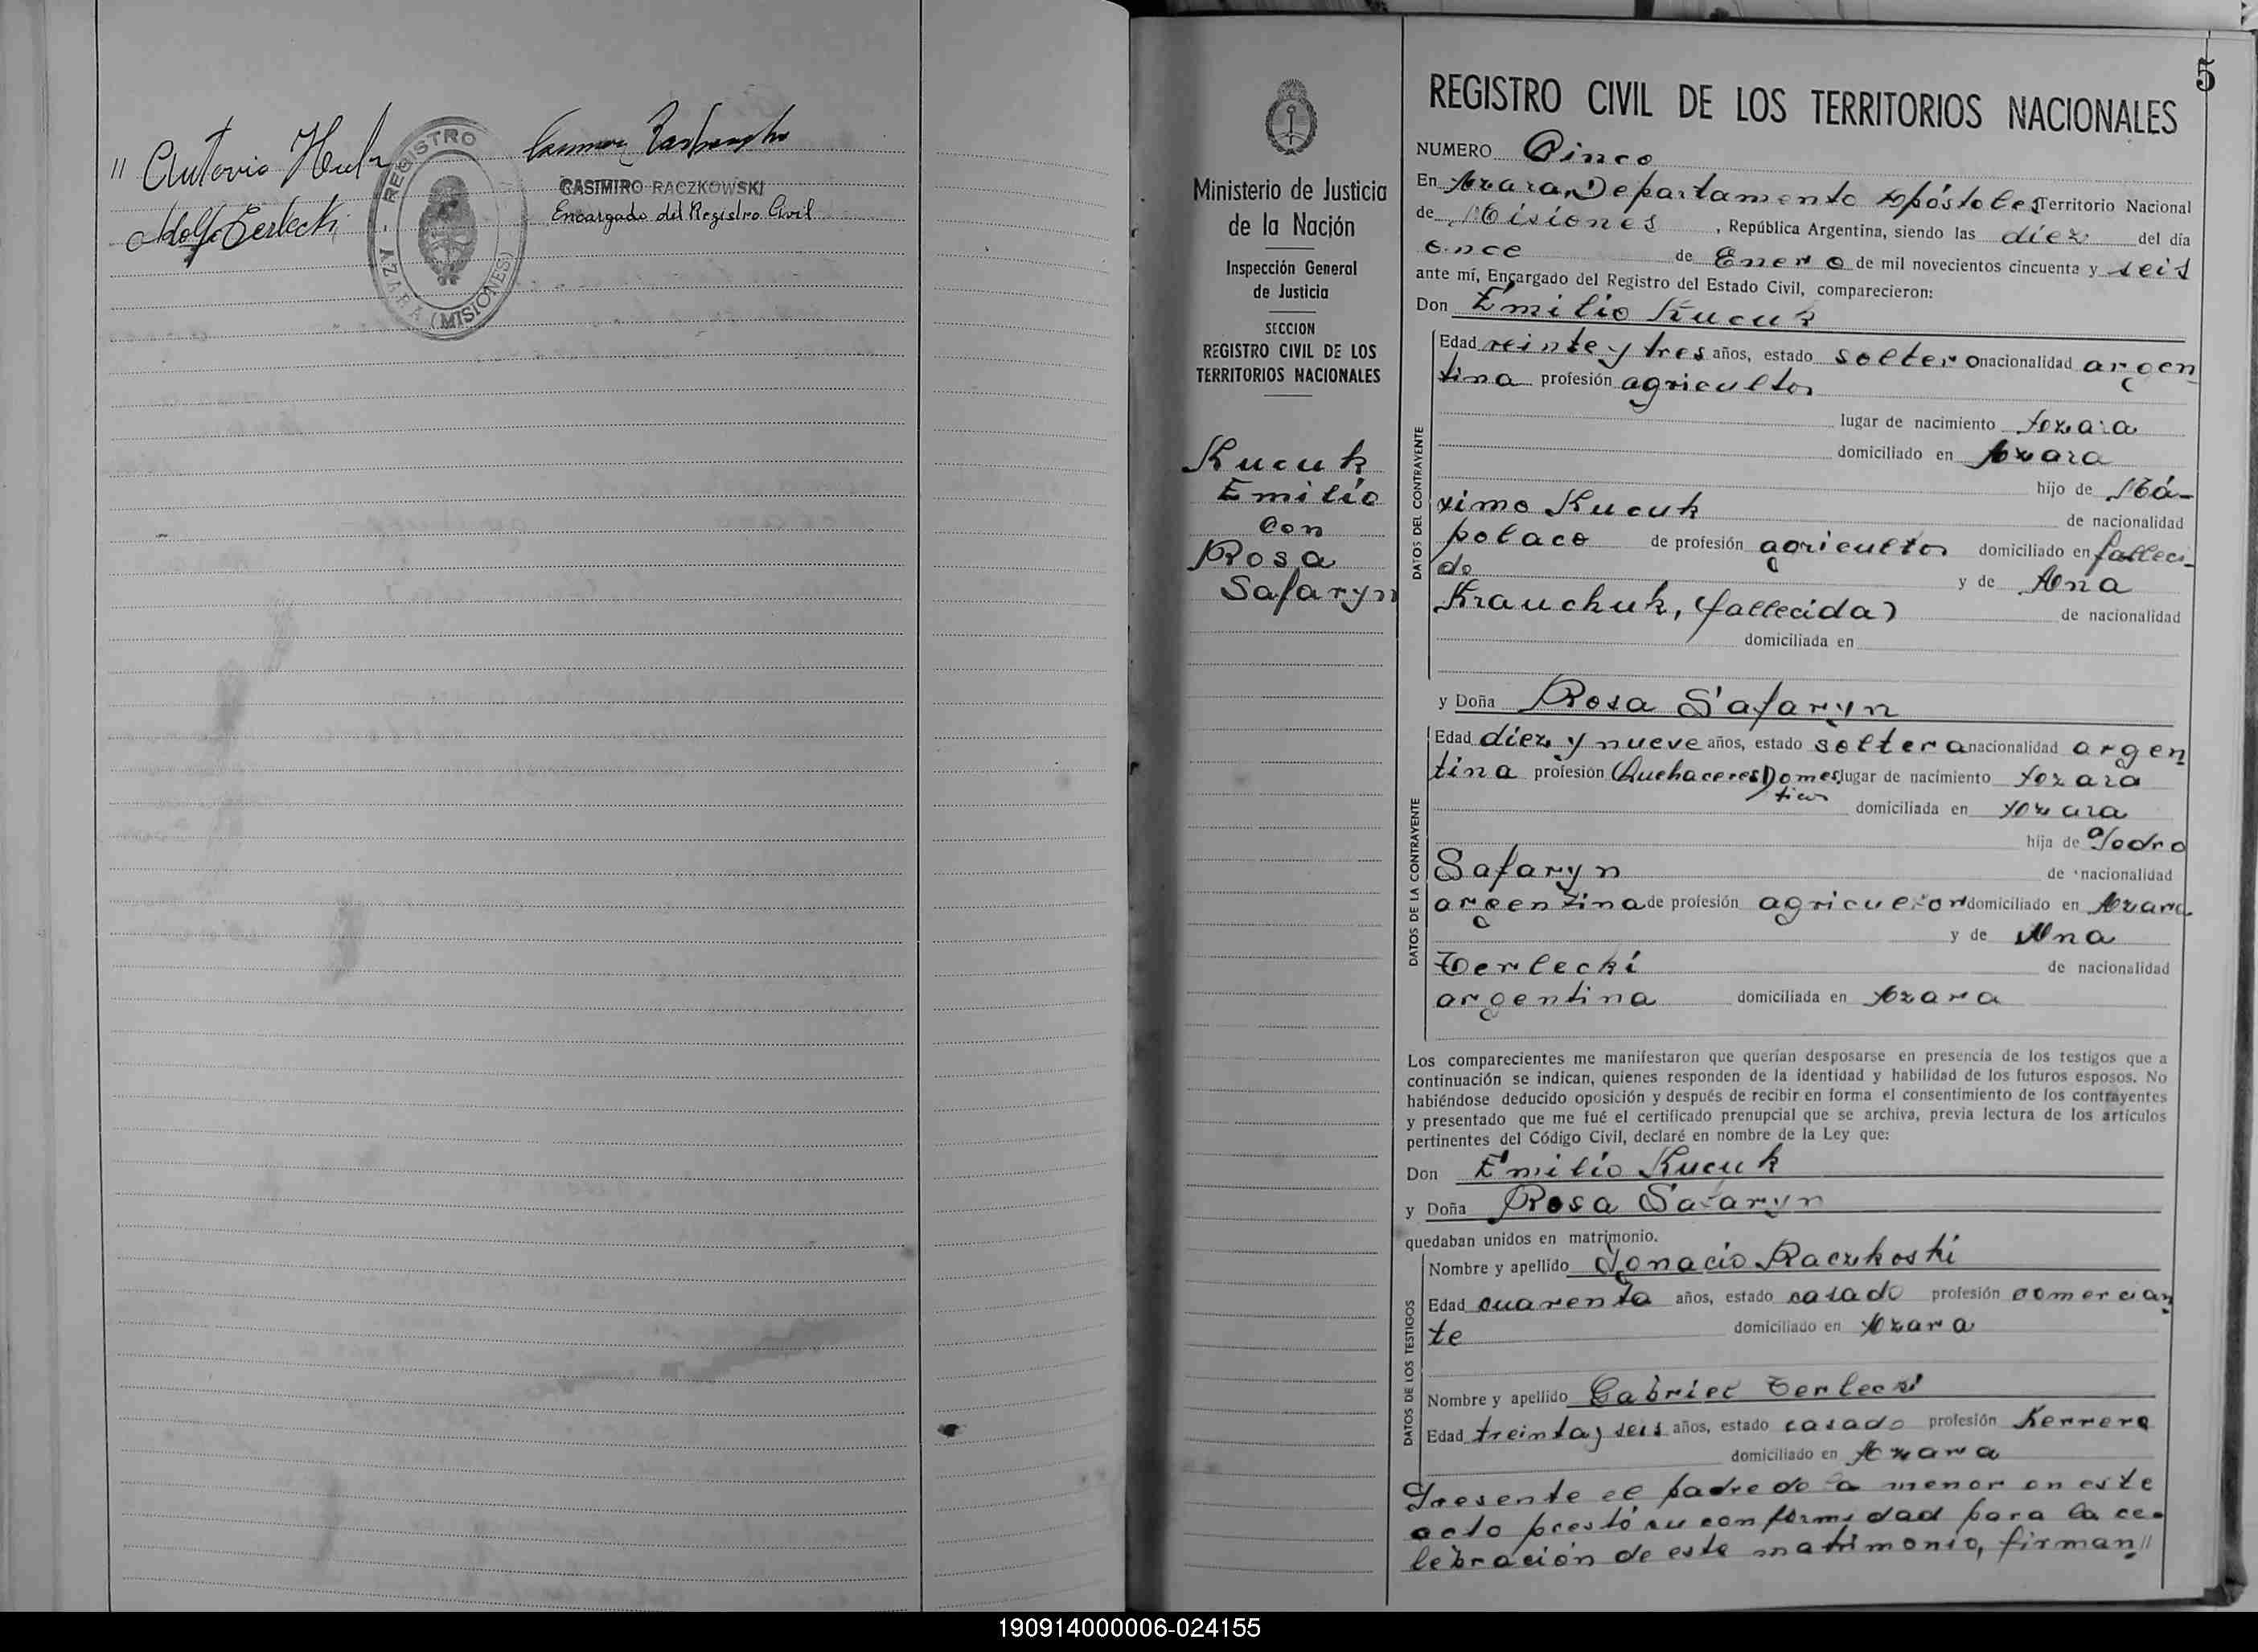 " Antonio
Adolfo Terlecki
REGISTRO
AZARA (MISIONES)
CASIMIRO RACZKOWSKI
Encargado del Registro Civil
Ministerio de Justicia
de la Nación
Inspección General
de Justicia
SECCION
REGISTRO CIVIL DE LOS
TERRITORIOS NACIONALES
Kucuk
Emilio
con
Rosa
Safaryn
5
REGISTRO CIVIL DE LOS TERRITORIOS NACIONALES
NUMERO Cinco
En Azara, Departamento Apóstoles Territorio Nacional
de Misiones, República Argentina, siendo las diez del día
once de Enero de mil novecientos cincuenta y seis
ante mí, Encargado del Registro del Estado Civil, comparecieron:
Don Emilio Kucuk
DATOS DEL CONTRAYENTE
Edad veinte y tres años, estado soltero nacionalidad argen
tina profesión agricultor
lugar de nacimiento Azara
domiciliado en Azara
hijo de Má-
ximo Kucuk de nacionalidad
polaco de profesión agricultor domiciliado en falleci-
do y de Ana
Krauchuk, (fallecida) de nacionalidad
domiciliada en
y Doña Rosa Safaryn
DATOS DE LA CONTRAYENTE
Edad diez y nueve años, estado soltera nacionalidad argen
tina profesión Quehaceres Domes lugar de nacimiento Azara
ticos domiciliada en Azara
hija de Pedro
Safaryn de nacionalidad
argentina de profesión agricultor domiciliado en Azara
y de Ana
Terlecki de nacionalidad
argentina domiciliada en Azara
Los comparecientes me manifestaron que querían desposarse en presencia de los testigos que a
continuación se indican, quienes responden de la identidad y habilidad de los futuros esposos. No
habiéndose deducido oposición y después de recibir en forma el consentimiento de los contrayentes
y presentado que me fué el certificado prenupcial que se archiva, previa lectura de los artículos
pertinentes del Código Civil, declaré en nombre de la Ley que:
Don Emilio Kucuk
y Doña Rosa Safaryn
quedaban unidos en matrimonio.
DATOS DE LOS TESTIGOS
Nombre y apellido Ignacio Raczkoski
Edad cuarenta años, estado casado profesión comercian
te domiciliado en Azara
Nombre y apellido Gabriel Terlecki
Edad treinta y seis años, estado casado profesión Herrero
domiciliado en Azara
Presente el padre de la menor en este
acto prestó su conformidad para la ce-
lebración de este matrimonio, firman//
190914000006-024155